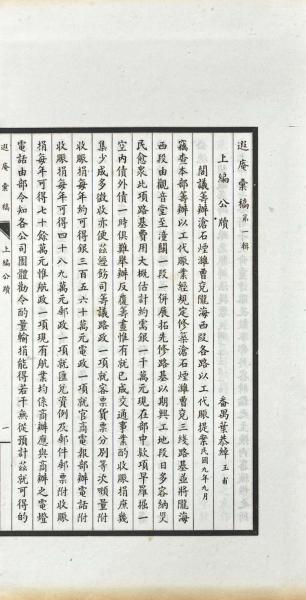 遐庵彙稿第一輯
上編 公牘
番禺葉恭綽玉甫
閣議籌辦滄石煙濰曹兗隴海西段各路以工代賑提案民國九年九月
竊查本部籌辦以工代賑業經規定修築滄石煙濰曹兗三線路基並將隴海
西段由觀音堂至潼關一段一併展拓先修路基以期興工地段日多容納災
民愈衆此項路基費用大概估計約需銀一千萬元現在部中款項早羅掘一
空內債外債一時俱難舉辦反覆籌畫惟有就已成交通事業酌收賑捐庶幾
集少成多徵收亦便茲經飭司籌議路政一項就客票貨票分別等次順量附
收賑捐每年約可得銀三百五六十萬元電政一項就官商電報部辦電話附
收賑捐每年可得四十八九萬元郵政一項就匯兌資例及郵件郵票附收賑
捐每年可得七十餘萬元惟航政一項現有航業均係商辦應與商辦之電燈
電話由部令知各公司團體勸令酌量輸捐能得若干無從預計茲就可得的
遐庵彙稿
上編公牘
一